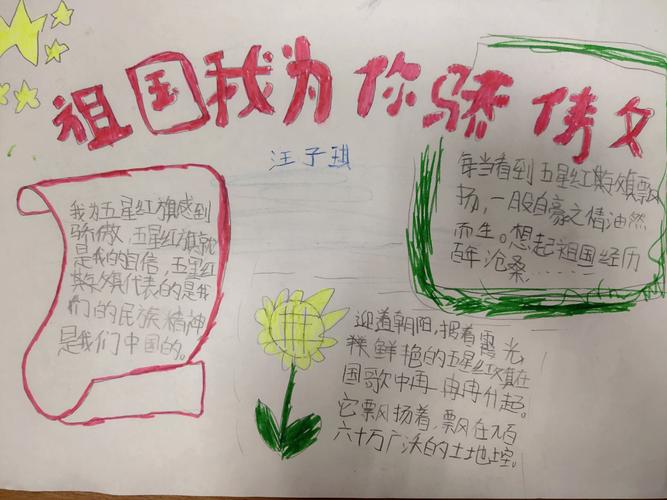 祖国我为你骄傲文
汪子琪
我为五星红旗感到
骄傲,五星红旗就
是我的自信,五星红
旗代表的是我
们的民族精神
是我们中国的。
每当看到五星红旗飘
扬,一股自豪之情油然
而生。想起祖国经历
百年沧桑……
迎着朝阳,披着霞光,
鲜艳的五星红旗在
国歌中再冉冉升起。
它飘扬着,飘在九百
六十万广沃的土地上空。